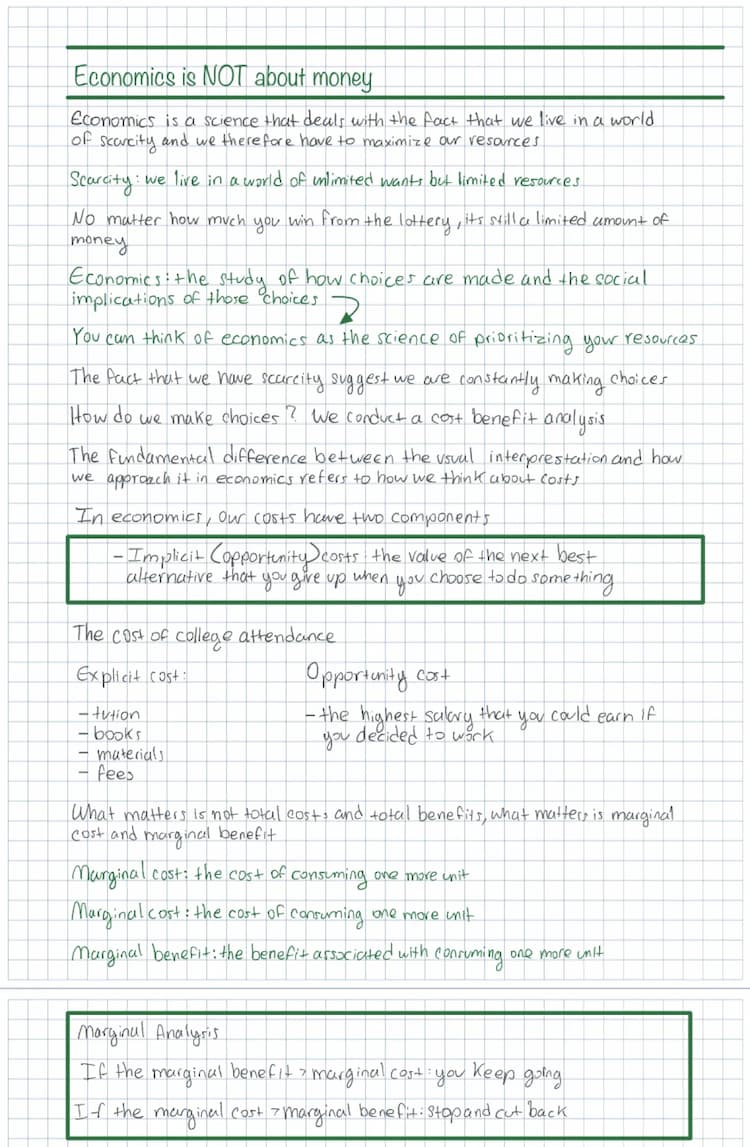 Economics is NOT about money
Economics is a science that deals with the fact that we live in a world
of scarcity and we therefore have to maximize our resources
Scarcity: we live in a world of unlimited wants but limited resources
No matter how much you win from the lottery, its still a limited amount of
money
Economics: the study of how choices are made and the social
implications of those choices
You can think of economics as the science of prioritizing your resources
The fact that we have scarcity suggest we are constantly making choices
How do we make choices? We conduct a cost benefit analysis
The fundamental difference between the usual interprestation and how
we approach it in economics refers to how we think about costs
In economics, our costs have two components
- Implicit (opportunity) costs: the value of the next best
alternative that you give up when you choose to do something
The cost of college attendance
Explicit cost:
- tution
- books
- materials
- fees
Opportunity cost
- the highest salary that you could earn if
you decided to work
What matters is not total costs and total benefits, what matters is marginal
cost and marginal benefit
Marginal cost: the cost of consuming one more unit
Marginal cost: the cost of consuming one more unit
Marginal benefit: the benefit associated with consuming one more unit
Marginal Analysis
If the marginal benefit > marginal cost: you keep going
If the marginal cost > marginal benefit: stop and cut back